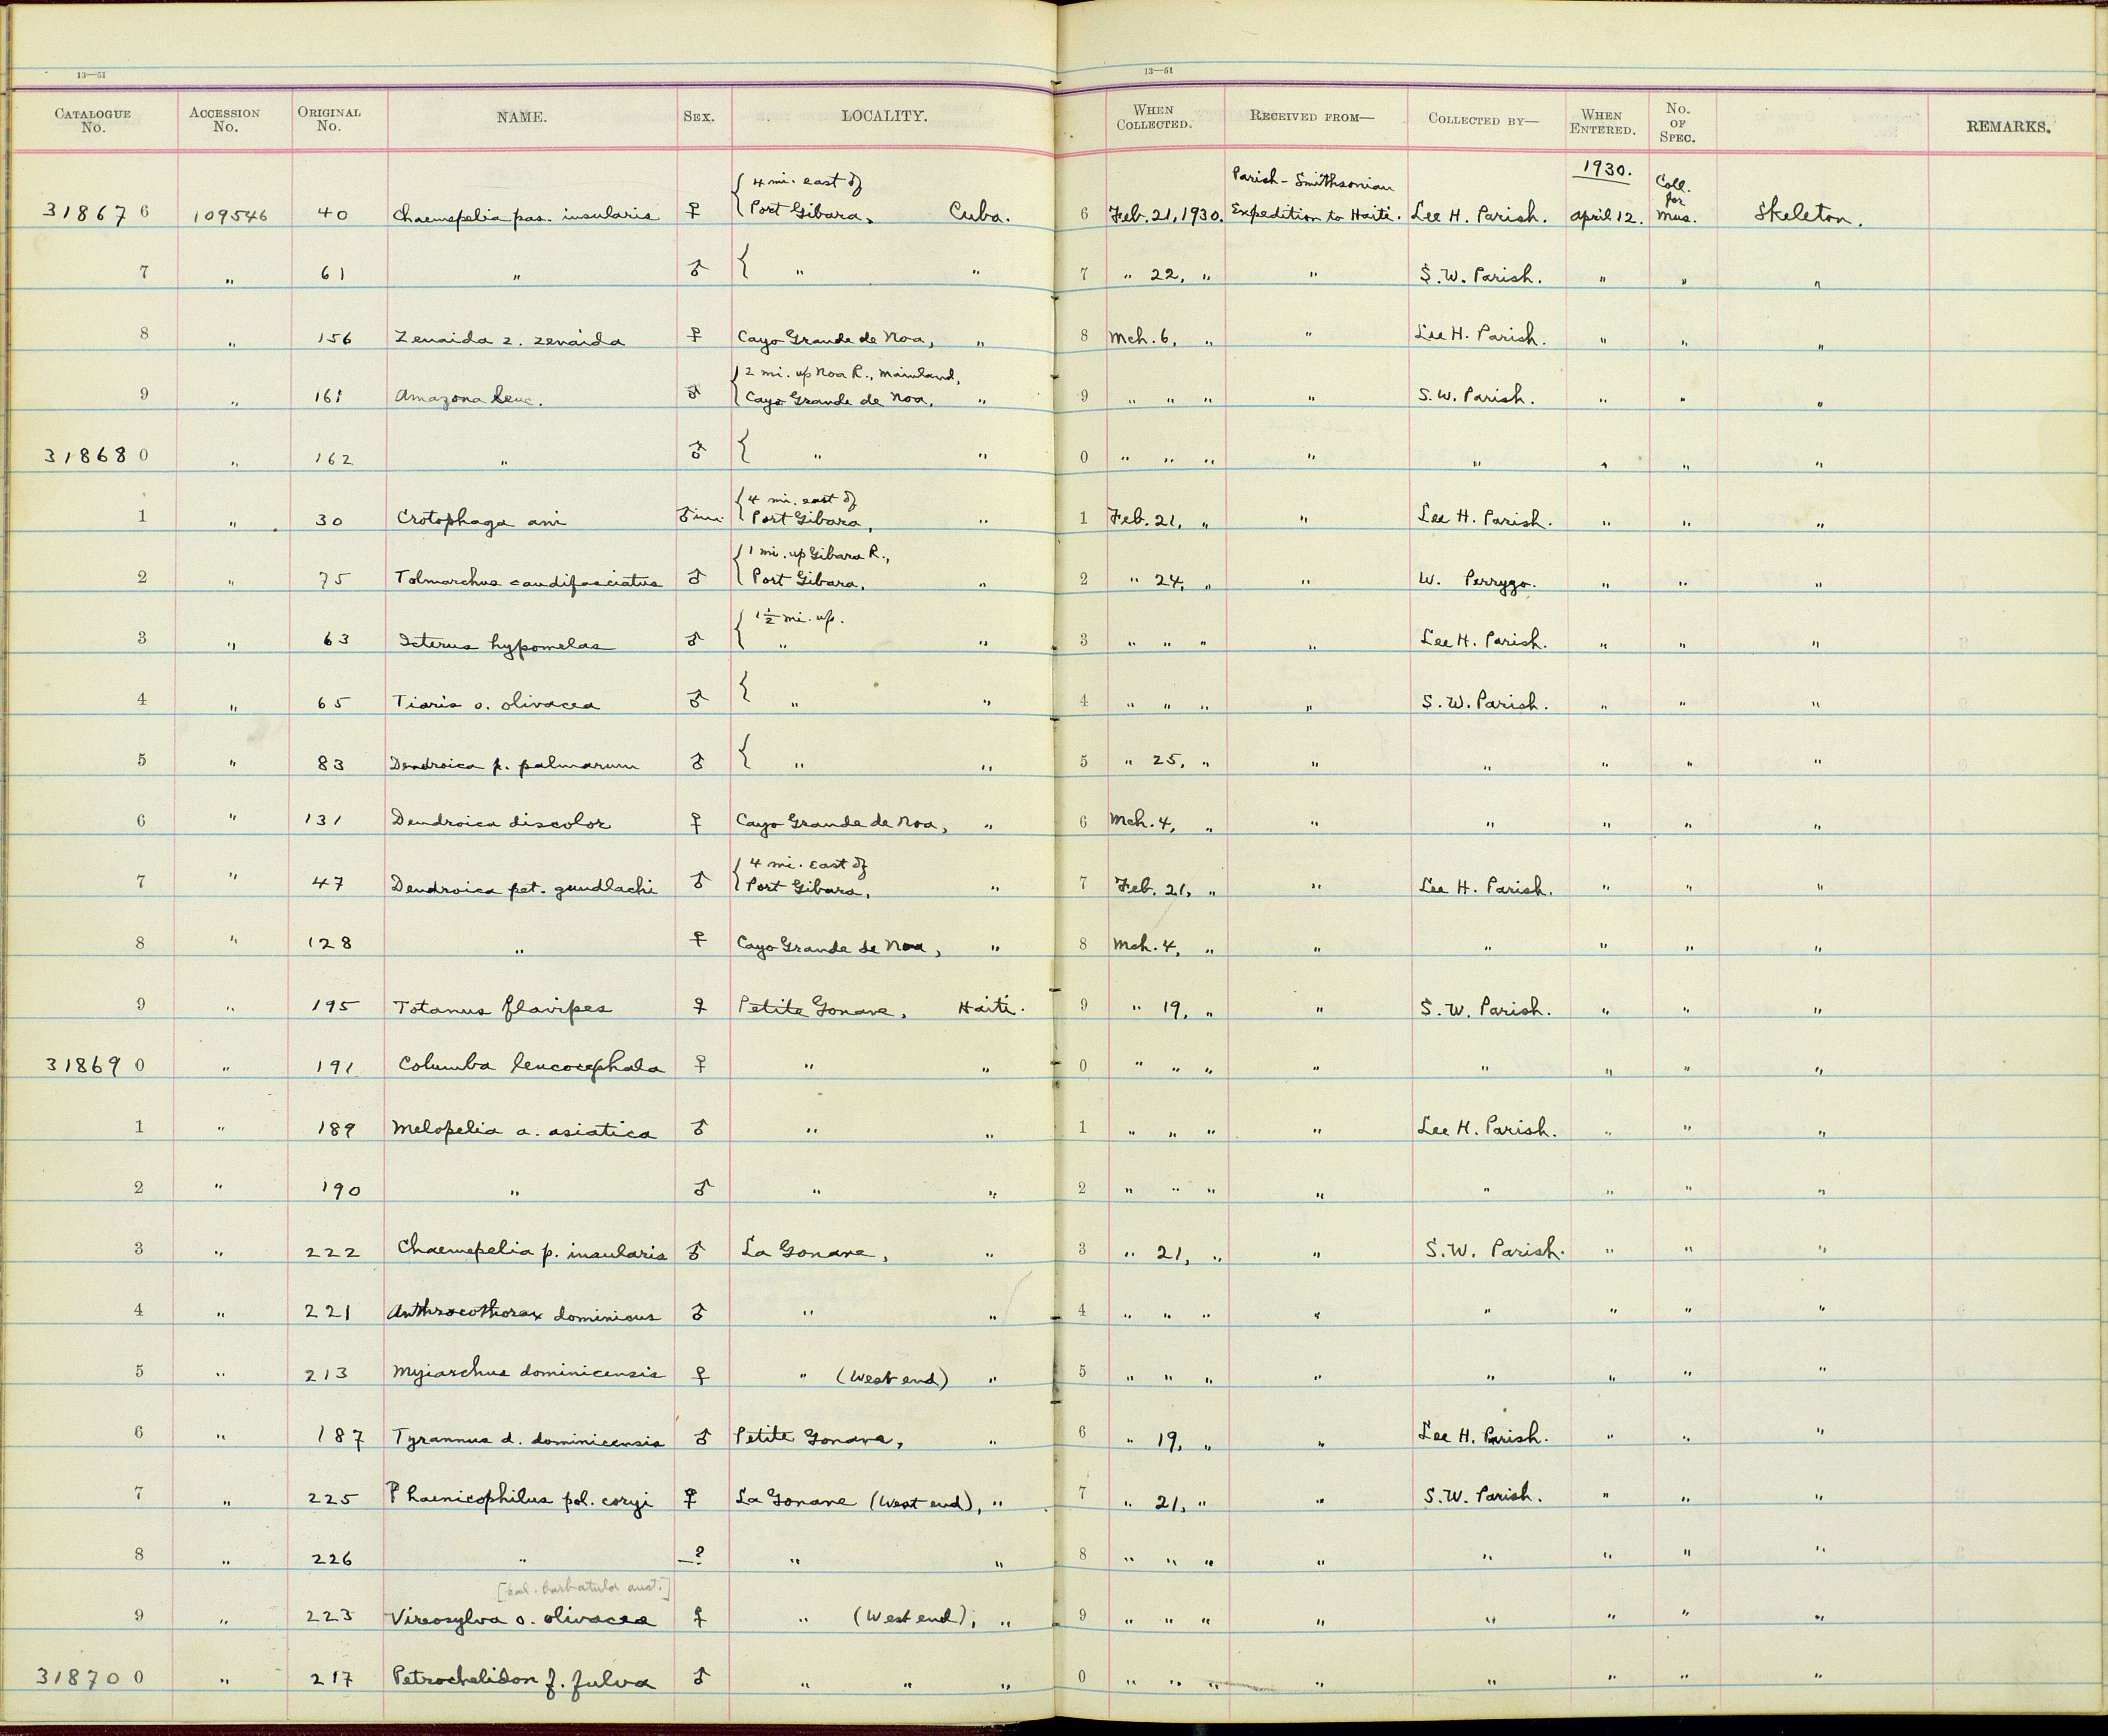 13—51
13—51
CATALOGUE No. ACCESSION No. ORIGINAL No. NAME. SEX. LOCALITY. WHEN COLLECTED. RECEIVED FROM— COLLECTED BY— WHEN ENTERED. No. OF SPEC. REMARKS.
318676 109546 40 Chaemepelia pas. insularis ♀ { 4 mi. east of Port Gibara, Cuba. 6 Feb. 21, 1930. Parish-Smithsonian Expedition to Haiti. Lee H. Parish. 1930. April 12. Coll. for Mus. Skeleton.
7 " 61 " ♂ { " " 7 " 22, " " S. W. Parish. " " "
8 " 156 Zenaida z. zenaida ♀ Cayo Grande de Noa, " 8 Mch. 6, " " Lee H. Parish. " " "
9 " 161 Amazona leuc. ♂ { 2 mi. up Noa R., mainland, Cayo Grande de Noa, " 9 " " " " S. W. Parish. " " "
318680 " 162 " ♂ { " " 0 " " " " " " " "
1 " 30 Crotophaga ani ♂ im. { 4 mi. east of Port Gibara, " 1 Feb. 21, " " Lee H. Parish. " " "
2 " 75 Tolmarchus caudifasciatus ♂ { 1 mi. up Gibara R., Port Gibara, " 2 " 24, " " W. Perrygo. " " "
3 " 63 Icterus hypomelas ♂ { 1½ mi. up. " " 3 " " " " Lee H. Parish. " " "
4 " 65 Tiaris o. olivacea ♂ { " " 4 " " " " S. W. Parish. " " "
5 " 83 Dendroica p. palmarum ♂ { " " 5 " 25, " " " " " "
6 " 131 Dendroica discolor ♀ Cayo Grande de Noa, " 6 Mch. 4, " " " " " "
7 " 47 Dendroica pet. gundlachi ♂ { 4 mi. east of Port Gibara, " 7 Feb. 21, " " Lee H. Parish. " " "
8 " 128 " ♀ Cayo Grande de Noa, " 8 Mch. 4, " " " " " "
9 " 195 Totanus flavipes ♀ Petite Gonave, Haiti. 9 " 19, " " S. W. Parish. " " "
318690 " 191 Columba leucocephala ♀ " " 0 " " " " " " " "
1 " 189 Melopelia a. asiatica ♂ " " 1 " " " " Lee H. Parish. " " "
2 " 190 " ♂ " " 2 " " " " " " " "
3 " 222 Chaemepelia p. insularis ♂ La Gonave, " 3 " 21, " " S. W. Parish. " " "
4 " 221 Anthracothorax dominicus ♂ " " 4 " " " " " " " "
5 " 213 Myiarchus dominicensis ♀ " (West end) " 5 " " " " " " " "
6 " 187 Tyrannus d. dominicensis ♂ Petite Gonave, " 6 " 19, " " Lee H. Parish. " " "
7 " 225 Phaenicophilus pol. coryi ♀ La Gonave (West end), " 7 " 21, " " S. W. Parish. " " "
8 " 226 " —? " " 8 " " " " " " " "
[barbatulus auct.]
9 " 223 Vireosylva o. olivacea ♀ " (West end), " 9 " " " " " " " "
318700 " 217 Petrochelidon f. fulva ♂ " " " 0 " " " " " " " "